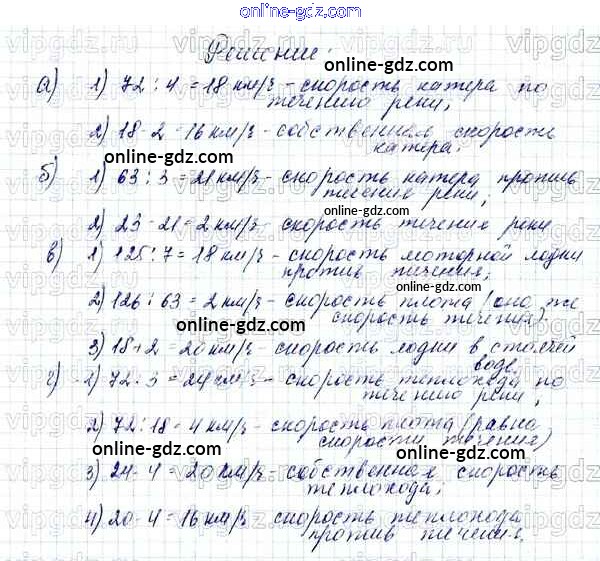 online-gdz.com
Решение:
а) 1) 72 : 4 = 18 км/ч – скорость катера по
течению реки;
2) 18 - 2 = 16 км/ч – собственная скорость
катера.
online-gdz.com
б) 1) 63 : 3 = 21 км/ч – скорость катера против
течения реки;
online-gdz.com
2) 23 - 21 = 2 км/ч – скорость течения реки
в) 1) 125 : 7 = 18 км/ч – скорость моторной лодки
против течения;
online-gdz.com
2) 126 : 63 = 2 км/ч – скорость плота (она же
скорость течения)
online-gdz.com
3) 18 + 2 = 20 км/ч – скорость лодки в стоячей
воде.
г) 1) 72 : 3 = 24 км/ч – скорость теплохода по
течению реки;
online-gdz.com
2) 72 : 18 = 4 км/ч – скорость плота (равна
скорости течения)
online-gdz.com
3) 24 - 4 = 20 км/ч – собственная скорость
теплохода;
online-gdz.com
4) 20 - 4 = 16 км/ч скорость теплохода
против течения.
online-gdz.com